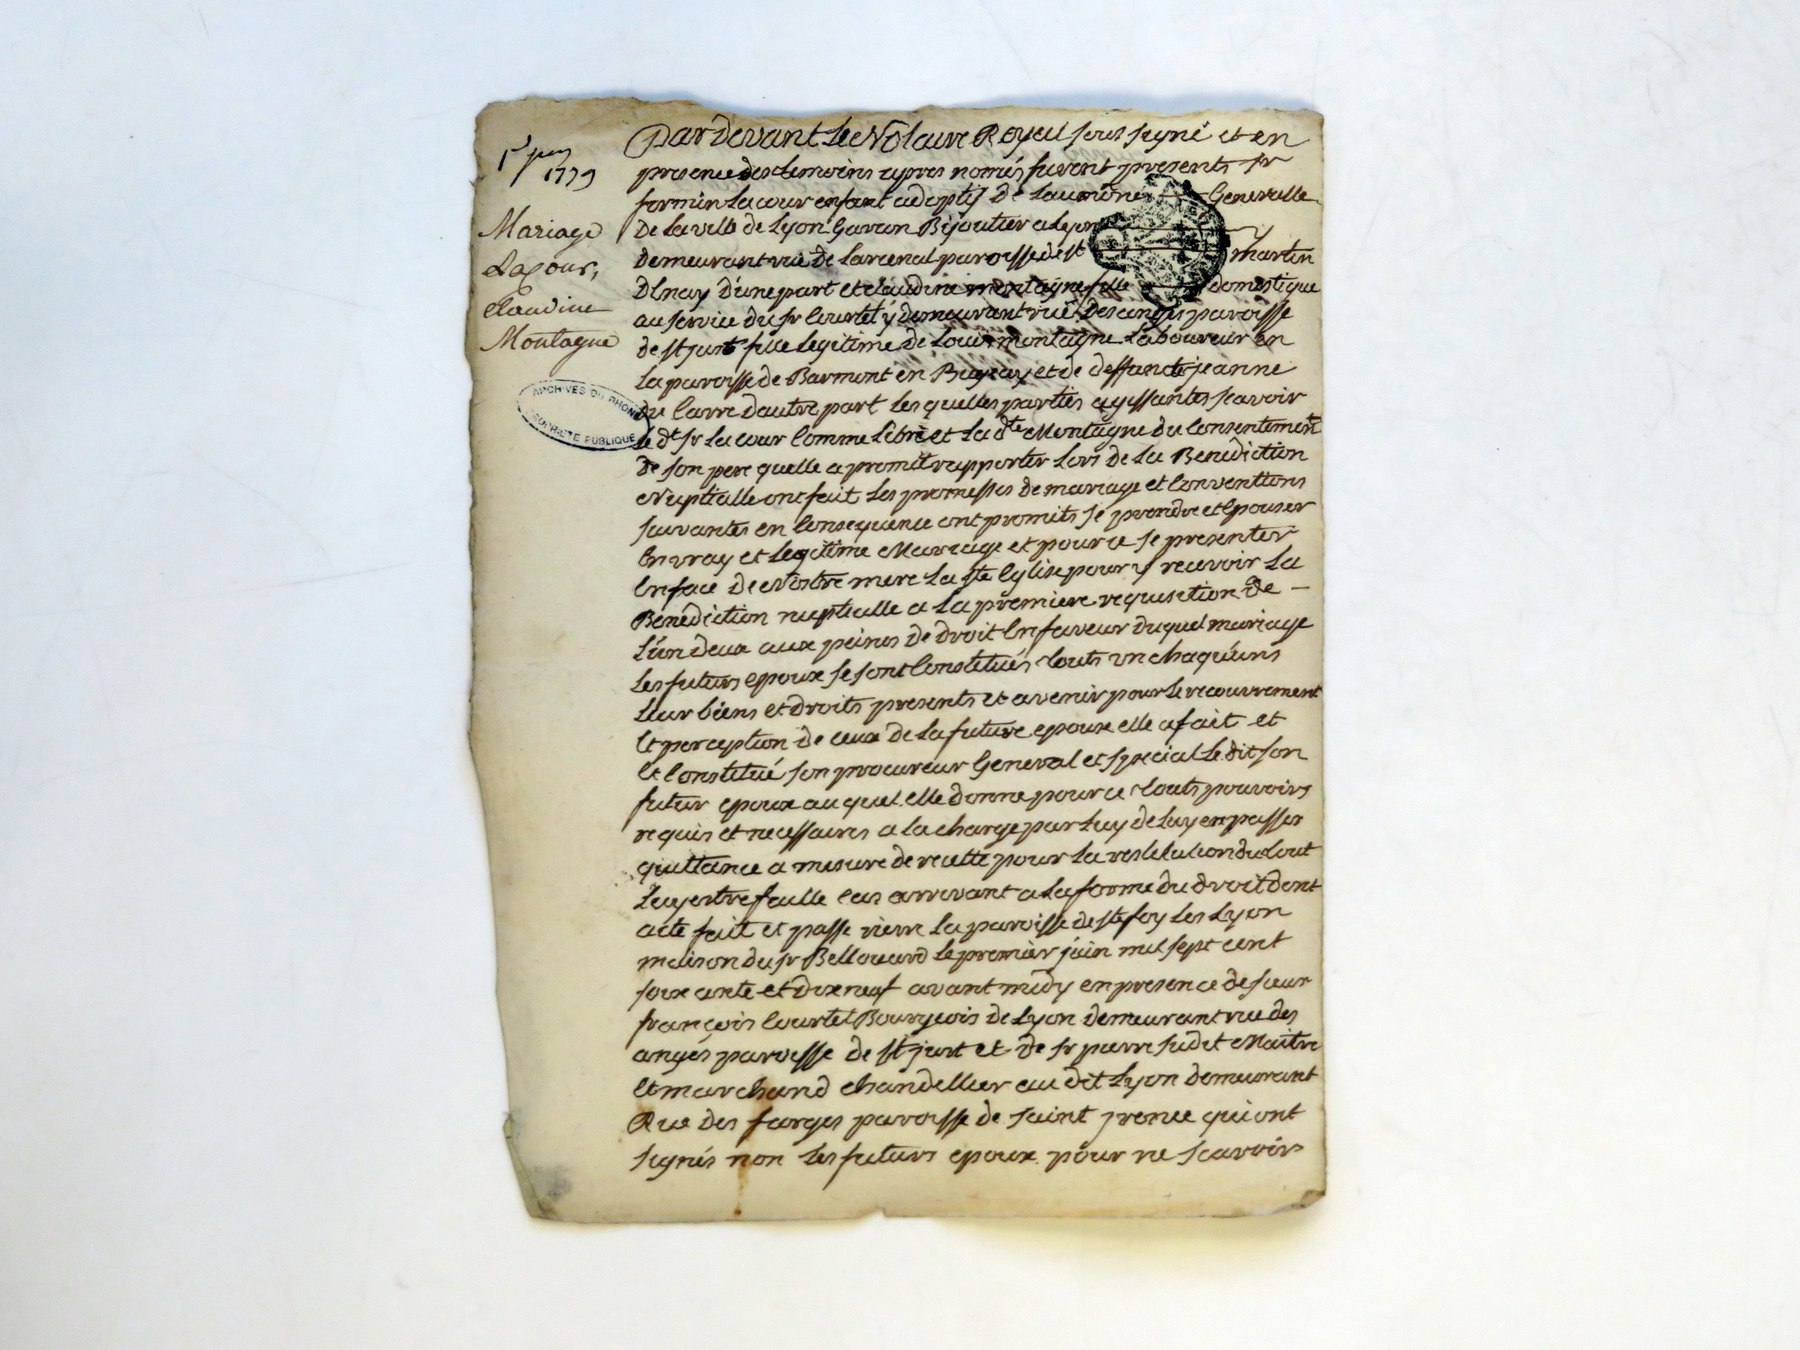 1er juin
1779
Mariage
Lacour,
Claudine
Montagne
ARCHIVES DU RHÔNE
PROPRIÉTÉ PUBLIQUE
Par Devant Le Notaire Royal sous signé et en
presence des temoins cy pres només furent presents sr
formin La cour enfant adoptif De Laumone Generalle
De La ville de Lyon Garcon Bijoutier a Lyon y
Demeurant rue de Larcenal paroisse de st martin
Dénay d'une part et claudine montagne fille domestique
au service du sr Courtet y demeurant rue Des anges paroisse
de st just fille Legitime de Louis montagne Laboureur en
La paroisse de Barmont en Bugeay et de deffante jeanne
Du Carre d'autre part Les quelles parties agissantes scavoir
Le dt sr La cour Comme Libre et La dte Montagne du Consentement
De son pere quelle a promit rapporter Lors de La Benediction
Nuptialle ont fait Les promesses De mariage et Conventions
suivantes en Consequence ont promits se prendre et Epouser
En vray et Legitime Mariage et pour ce se presenter
En face de Nostre mere La ste Eglise pour y recevoir La
Benediction nuptialle a La premiere requisition de
L'un deux aux peines De droit En faveur Duquel mariage
Les futurs epoux se sont Constitués touts un chaquéuns
Leur biens et droits presents et avenir pour Le recouvrement
Et perception de ceux de La future epouse elle a fait et
Et Constitué son procureur General et special Le dit son
futur epoux au quel elle donne pour ce touts pouvoirs
requis et necessaires a la charge par Luy de Luy en passer
quittance a mesure de recette pour La restitution du tout
Luy estre faitte cas arrivant a La forme du droit dont
acte fait et passé riere La paroisse de ste foy Les Lyon
maison du sr Bellouard Le premier juin mil sept cent
soixante et dix neuf avant midy en presence de sieur
françois Courtet Bourgeois de Lyon demeurant rue des
anges paroisse de st just et de sr pierre sudet Maitre
Et marchand chandellier au dit Lyon demeurant
Rue des farges paroisse de saint jrenee qui ont
signés non Les futurs epoux pour ne scavoir